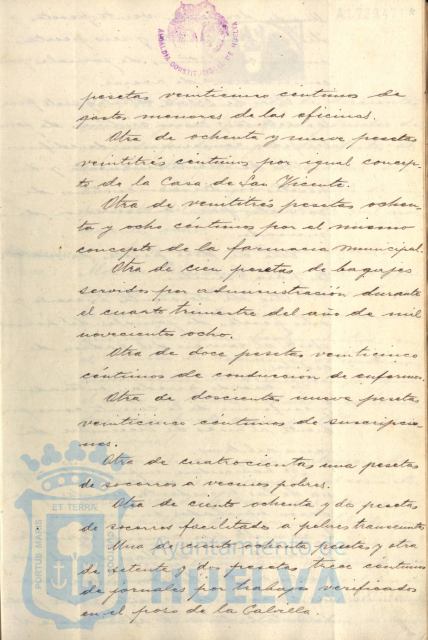 ALCALDIA CONSTITUCIONAL DE HUELVA
pesetas veinticinco céntimos de
gastos menores de las oficinas.
Otra de ochenta y nueve pesetas
veintitrés céntimos por igual concep-
to de la Casa de San Vicente.
Otra de veintitrés pesetas ochen-
ta y ocho céntimos por el mismo
concepto de la farmacia municipal.
Otra de cien pesetas de bagajes
servidos por administración durante
el cuarto trimestre del año de mil
novecientos ocho.
Otra de doce pesetas veinticinco
céntimos de conducción de enfermos.
Otra de doscientas nueve pesetas
veinticinco céntimos de suscripcio-
nes.
Otra de cuatrocientas una pesetas
de socorros á vecinos pobres.
Otra de ciento ochenta y dos pesetas
de socorros facilitados a pobres transeuntes
Una de ciento ochenta pesetas y otra
de setenta y dos pesetas trece céntimos
de jornales por trabajos verificados
en el pozo de la
PORTUS MARIS ET TERRAE CUSTODIAS
Ayuntamiento de
HUELVA